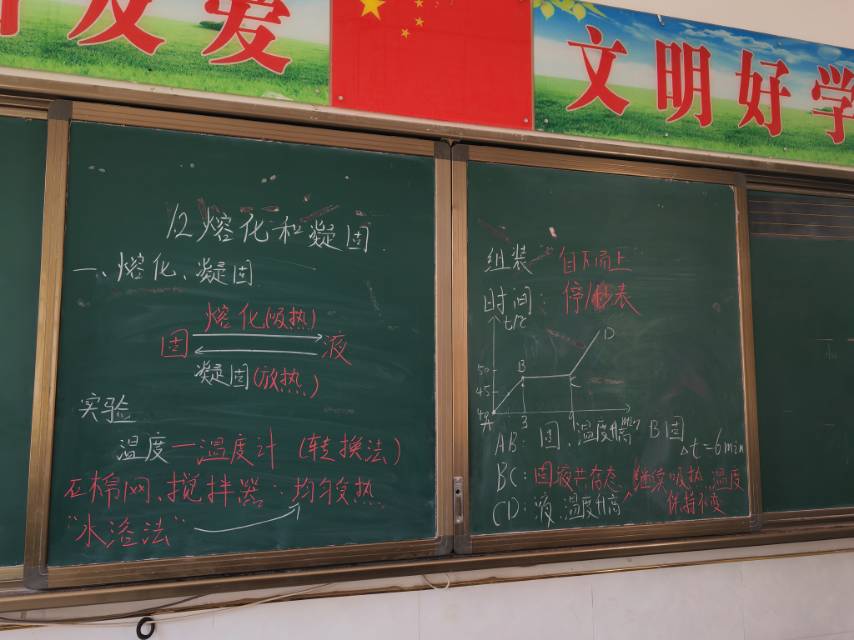 友爱
文明好学
12熔化和凝固
一、熔化、凝固
熔化(吸热)
固 液
凝固(放热)
实验
温度—温度计(转换法)
石棉网、搅拌器:均匀受热
"水浴法"
组装:自下而上
时间:停/秒表
t/℃
D
50
B
C
45
A
3
9
min
AB:固、温度升高 B固
Δt=6min
BC:固液共存态 继续吸热 温度
保持不变
CD:液、温度升高